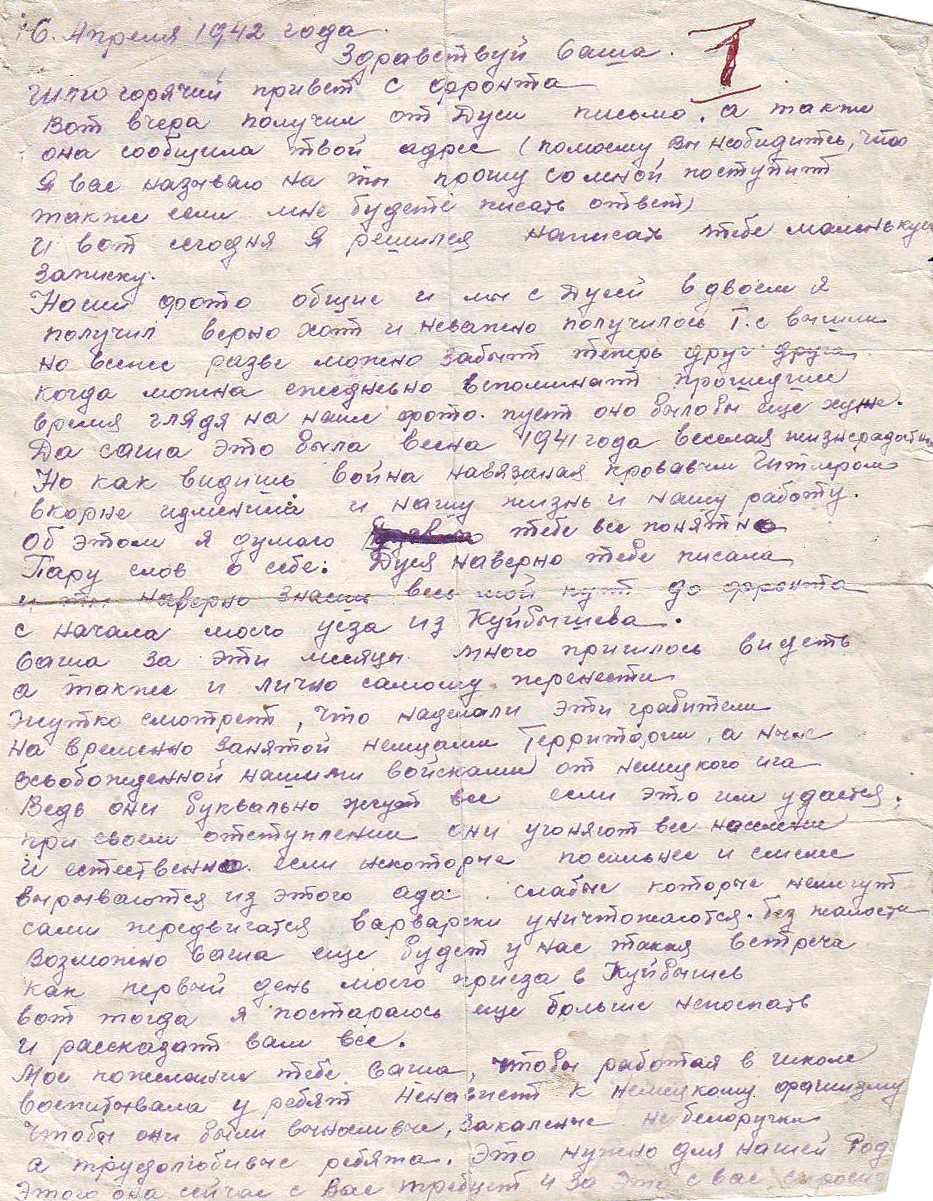 16. Апреля 1942 года.
Здравствуй Саша.
1
Шлю горячий привет с фронта
Вот вчера получил от Дуси письмо, а также
она сообщила твой адрес (помоему Вы необидитесь, что
я вас называю на ты прошу сомной поступит
также если мне будете писать ответ)
и вот сегодня я решился написать тебе маленькую
записку.
Наши фото общие и мы с Дусей вдвоем я
получил верно хотя и неважно получилось Т.е вышли
но все же разве можно забыт теперь друг друга
когда можна ежедневно вспоминат прошедшии
время глядя на наше фото. пуст оно былобы еще хуже.
Да саша это была весна 1941 года веселая жизнерадостн
Но как видишь война навязаная кровавым Гитлером
вкорне изменила и нашу жизнь и нашу работу.
Об этом я думаю тебе все понятно
Пару слов о себе: Дуся наверно тебе писала
и ты наверно знаешь весь мой пут до фронта
с начала моего уезда из Куйбышева.
Саша за эти месяцы много пришлось видеть
а также и лично самому перенести
Жутко смотрет, что наделали эти грабители
на временно занятой немцами Территории, а ныне
освобожденной нашими войсками от немецкого ига
Ведь они буквально жгут все если это им удается.
при своем отступлении они угоняют все население
и естественно если некоторые посильнее и смелее
вырываются из этого ада. слабые которые немогут
сами передвигатся варварски уничтожаются. без жалости
Возможно Саша еще будет у нас такая встреча
как первый день моего приезда в Куйбышев
вот тогда я постараюсь еще больше непоспать
и рассказат вам все.
Мое пожелании тебе Саша, чтобы работая в школе
воспитывала у ребят Ненавист к немецкому фашизму
чтобы они были выносливые, закаленые небелоручки
а трудолюбивые ребята. Это нужно для нашей Род
Этого она сейчас с Вас требует и за это с вас спроси